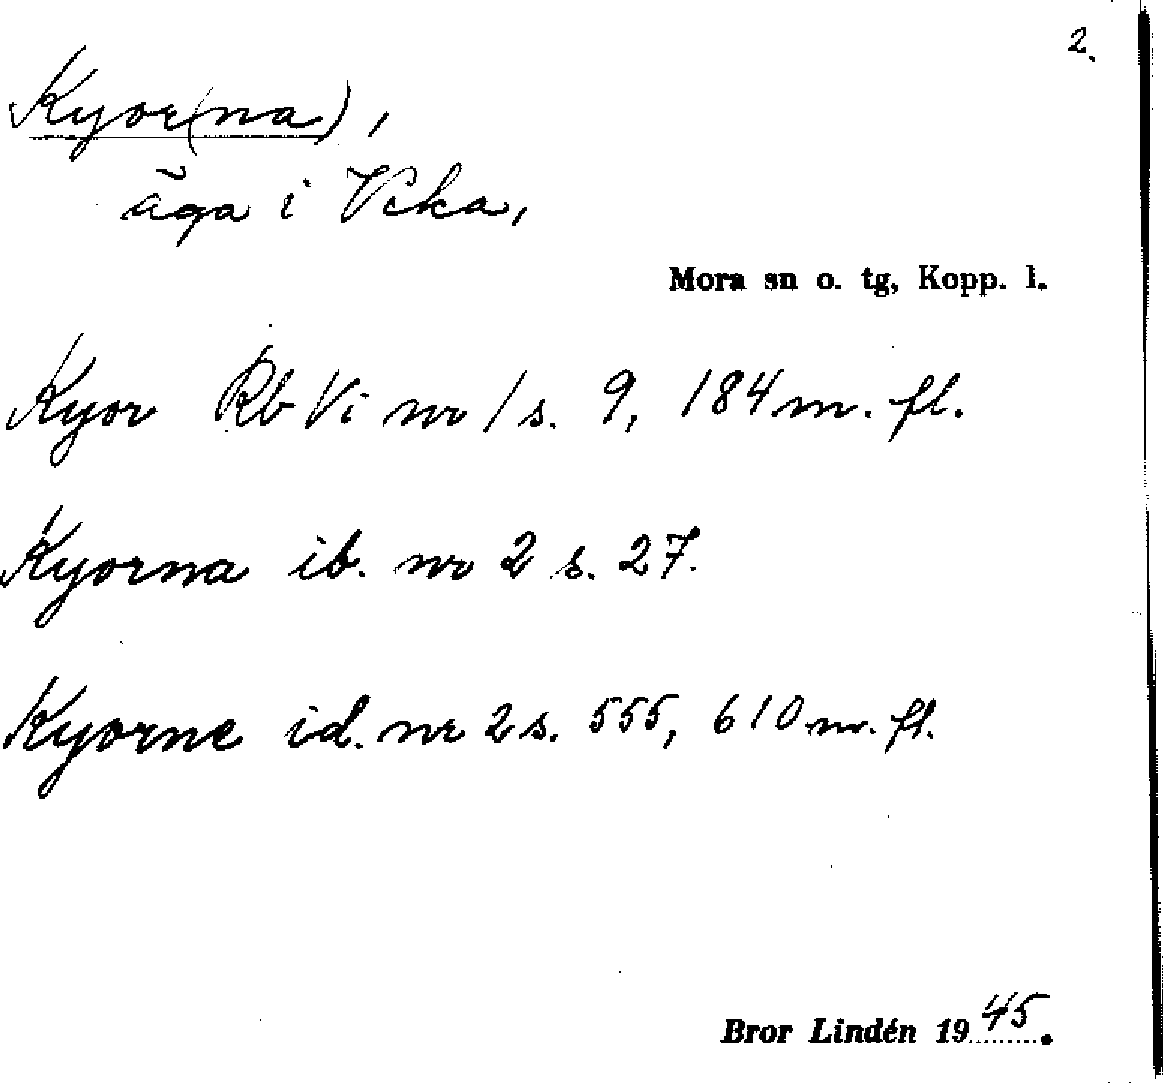 2.
Kyor(na),
äga i Vika,
Mora sn o. tg, Kopp. l.
Kyor Rb Vi nr 1 s. 9, 184 m. fl.
Kyorna ib. nr 2 s. 27.
Kyorne id. nr 2 s. 555, 610 m. fl.
Bror Lindén 1945.